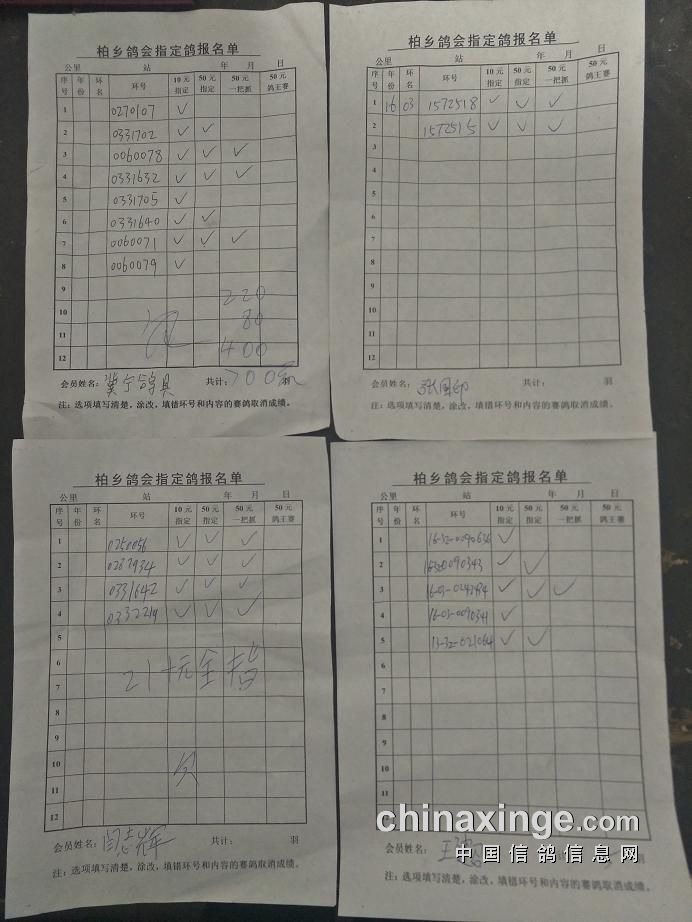 柏乡鸽会指定鸽报名单
公里 站 年 月 日
序号 年份 环名 环号 10元指定 50元指定 50元一把抓 50元鸽王赛
1 0270107 ✓
2 0331702 ✓ ✓
3 0060078 ✓ ✓ ✓
4 0331632 ✓ ✓ ✓
5 0331705 ✓
6 0331640 ✓ ✓
7 0060071 ✓ ✓ ✓
8 0060079 ✓
9 220
10 80
11 400
12
会员姓名: 冀宁鸽具 共计: 700 羽
注:选项填写清楚,涂改,填错环号和内容的赛鸽取消成绩。
柏乡鸽会指定鸽报名单
公里 站 年 月 日
序号 年份 环名 环号 10元指定 50元指定 50元一把抓 50元鸽王赛
1 16 03 1572518 ✓ ✓ ✓
2 1572515 ✓ ✓ ✓
3
4
5
6
7
8
9
10
11
12
会员姓名: 张国印 共计: 羽
注:选项填写清楚,涂改,填错环号和内容的赛鸽取消成绩。
柏乡鸽会指定鸽报名单
公里 站 年 月 日
序号 年份 环名 环号 10元指定 50元指定 50元一把抓 50元鸽王赛
1 0250056 ✓ ✓ ✓
2 0287934 ✓ ✓ ✓
3 0331642 ✓ ✓ ✓
4 0332219 ✓ ✓ ✓
5
6
7 21 元全指
8
9
10 欠
11
12
会员姓名: 闫志辉 共计: 羽
注:选项填写清楚,涂改,填错环号和内容的赛鸽取消成绩。
柏乡鸽会指定鸽报名单
公里 站 年 月 日
序号 年份 环名 环号 10元指定 50元指定 50元一把抓 50元鸽王赛
1 16-32-0090636 ✓
2 0090343 ✓ ✓
3 16-03-0243494 ✓ ✓ ✓
4 16-03-0090341 ✓
5 13-32-021064 ✓ ✓
6
7
8
9
10
11
12
chinaxinge.com
会员姓名: 王
中国信鸽信息网
注:选项填写清楚,涂改,填错环号和内容的赛鸽取消成绩。